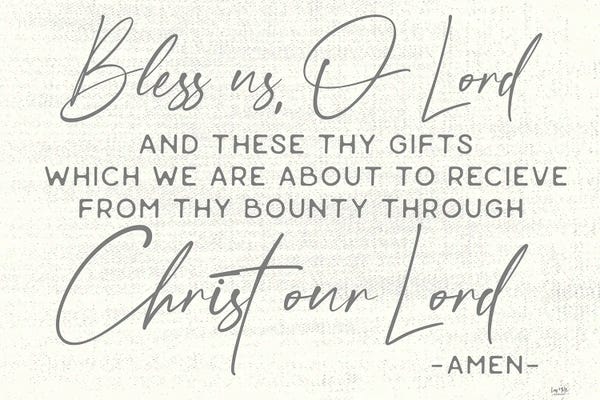 Bless us, O Lord
AND THESE THY GIFTS
WHICH WE ARE ABOUT TO RECIEVE
FROM THY BOUNTY THROUGH
Christ our Lord
-AMEN-